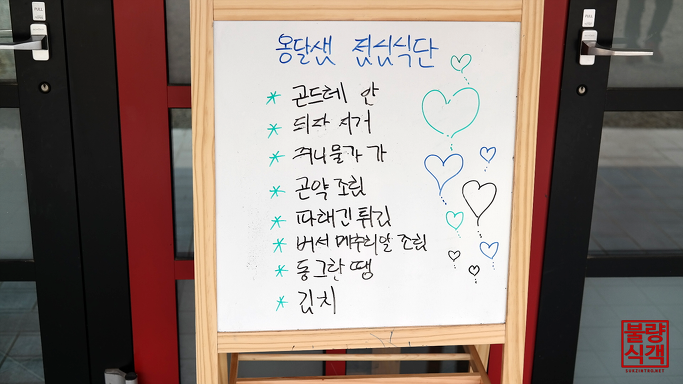 옹달샘 점심식단
* 곤드레 안
* 되자 지거
* 취나물가 가
* 곤약 조림
* 파래김 튀김
* 버섯 메추리알 조림
* 동그란 땡
* 김치
PULL
PULL
불량
식객